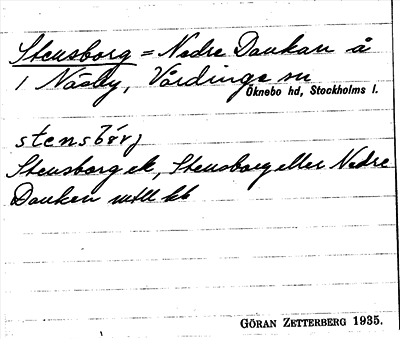 Stensborg = Nedre Dankan å
1 Näsby, Vårdinge sn
Öknebo hd, Stockholms l.
stensbårj
Stensborg ek, Stensborg eller Nedre
Dankan mtll kb
GÖRAN ZETTERBERG 1935.